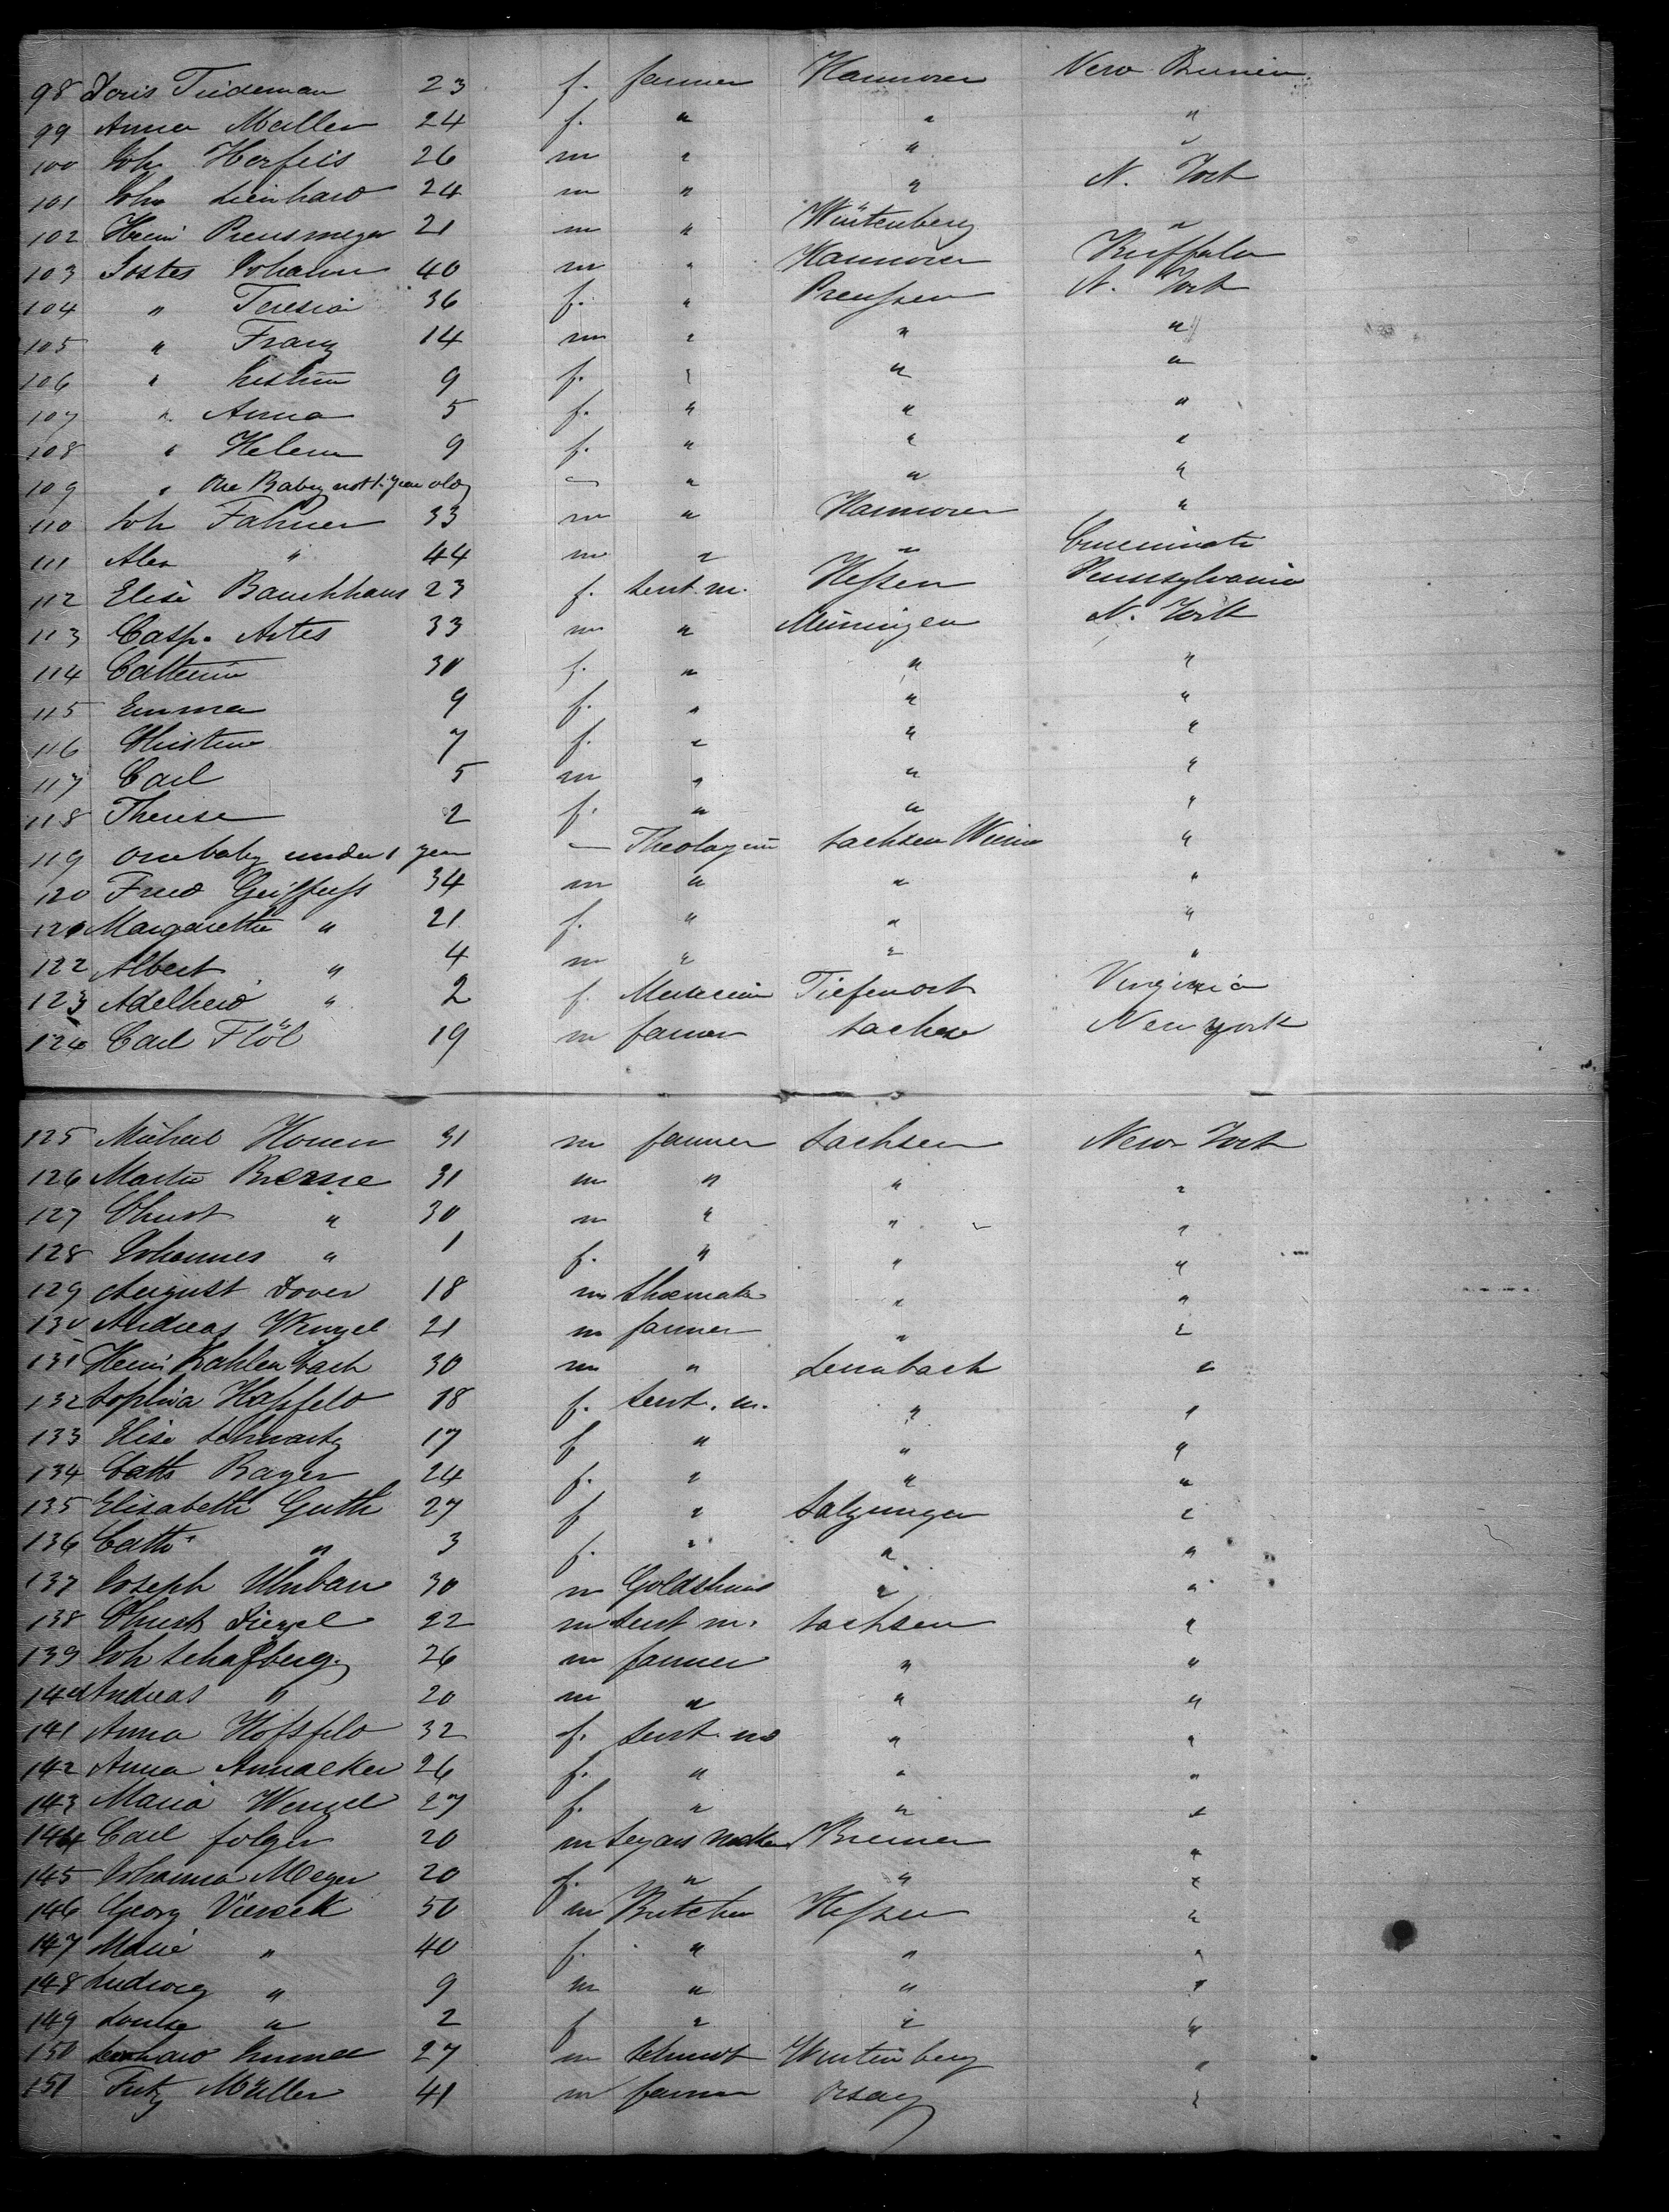 98 Doris Tiedeman 23 f. farmer Hannover New Bremen
99 Anna Mallen 24 f. " " "
100 Joh. Herfeis 26 m " " "
101 John Lienhard 24 m " " N. York
102 Heinr Preusmeyer 21 m " Würtenberg "
103 Jostes Johann 40 m " Hannover Buffalo
104 " Teresia 36 f. " Preussen N. York
105 " Franz 14 m " " "
106 " 9 f. " " "
107 " Anna 5 f. " " "
108 " Helena 9 f. " " "
109 " One Baby not 1 year old — " " "
110 Joh Fahner 33 m " Hannover "
111 Alex " 44 m " " Cincinnati
112 Elise Bauchhaus 23 f. Serv. m. Hessen Pennsylvania
113 Casp. Artes 33 m " Meiningen N. York
114 Catterin 30 f. " " "
115 Emma 9 f. " " "
116 Christine 7 f. " " "
117 Carl 5 m " " "
118 Therese 2 f. " " "
119 one baby under 1 year — Sachsen Weimar "
120 Fred 34 m " " "
121 Margarethe " 21 f. " " "
122 Albert " 4 m " " "
123 Adelheid " 2 f. Tiefenort Virginia
124 Carl Flöl 19 m farmer Sachse New york
125 Micheal Honen 31 m farmer Sachsen New York
126 Martin 31 m " " "
127 Christ " 30 m " " "
128 Johannes " 1 f. " " "
129 August Dover 18 m Shoemaker " "
130 Andreas Wenzel 21 m farmer " "
131 Heinr Kahlenbach 30 m " "
132 Sophia Hassfeld 18 f. Serv. m. " "
133 Elise Schwartz 17 f " " "
134 Cath Bayer 24 f. " " "
135 Elisabeth Guth 27 f " Salzungen "
136 Cath " 3 f. " " "
137 Joseph Uhrban 30 m Goldshmid " "
138 Christ Diezel 22 m Serv m. Sachsen "
139 Joh Schafberg 26 m farmer " "
140 Andreas " 20 m " " "
141 Anna Hofsfeld 32 f. Serv. m " "
142 Anna Annacker 26 f. " " "
143 Maria Wenzel 27 f. " " "
144 Carl folger 20 m Segars maker Bremen "
145 Johanna Meyer 20 f. " " "
146 Georg Viereck 50 m Butcher Hessen "
147 Marie " 40 f. " " "
148 Ludwig " 9 m " " "
149 Louise " 2 f " " "
150 27 m Wurtenberg "
151 Fritz Müller 41 m farmer "